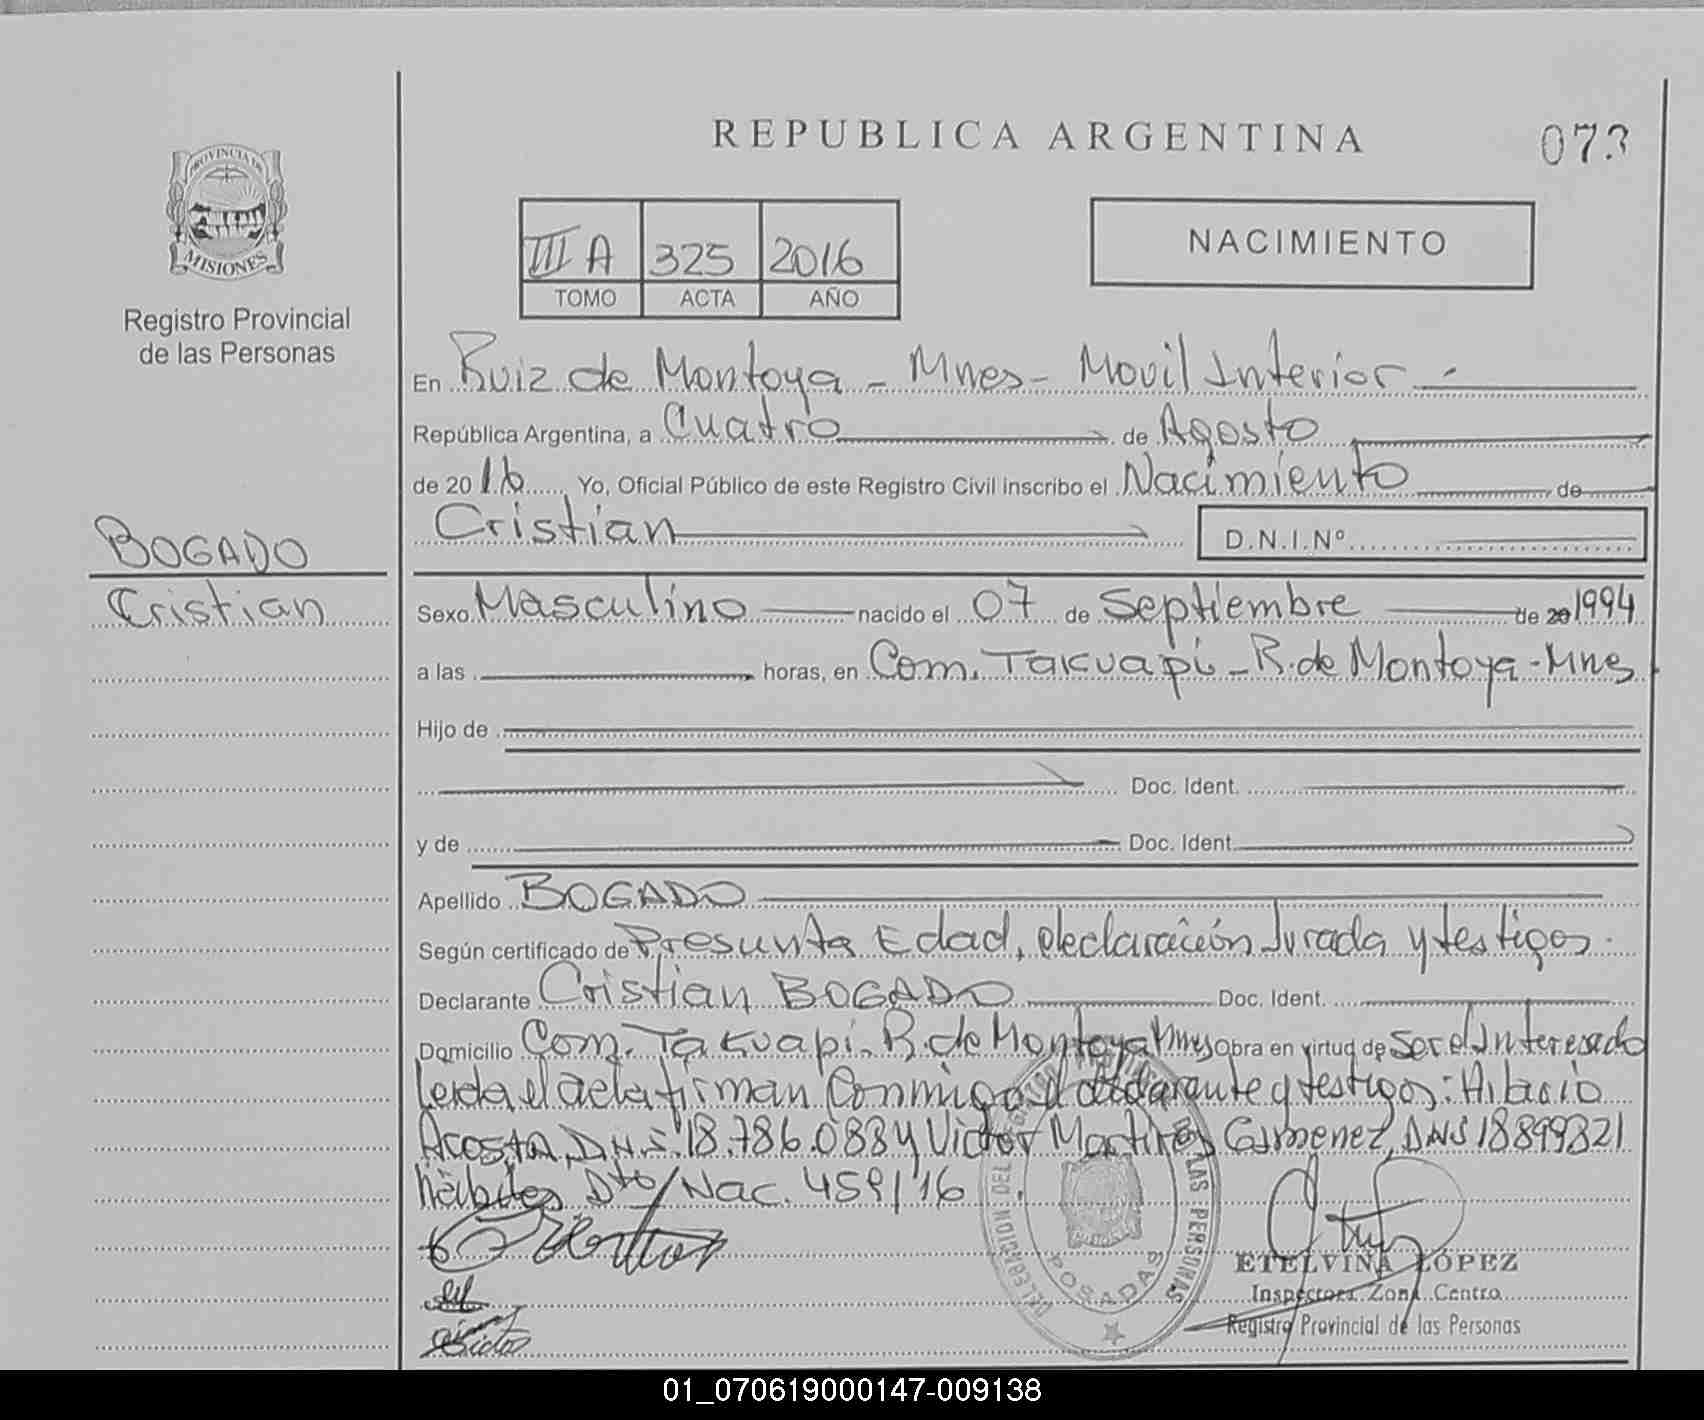 REPUBLICA ARGENTINA
073
PROVINCIA DE
MISIONES
Registro Provincial
de las Personas
III A 325 2016
TOMO ACTA AÑO
NACIMIENTO
En Ruiz de Montoya - Mnes - Movil Interior -
República Argentina, a Cuatro de Agosto
de 2016 Yo, Oficial Público de este Registro Civil inscribo el Nacimiento de
Cristian D.N.I.Nº
BOGADO
Cristian
Sexo Masculino nacido el 07 de Septiembre de 20 1994
a las horas, en Com. Takuapi - R. de Montoya - Mnes
Hijo de
Doc. Ident.
y de Doc. Ident.
Apellido BOGADO
Según certificado de Presunta Edad, declaración Jurada y testigos.
Declarante Cristian BOGADO Doc. Ident.
Domicilio Com. Takuapi. R. de Montoya Mnes Obra en virtud de ser el Interesado
Leida el acta firman Conmigo el declarante y testigos: Hilario
Acosta, D.N.I. 18.786.088 y Victor Martires Gimenez, DNI 18899821
hábiles Dto/Nac. 459/16
DEL LAS PERSONAS
POSADAS
ETELVINA LÓPEZ
Inspectora Zona Centro
Registro Provincial de las Personas
01_070619000147-009138